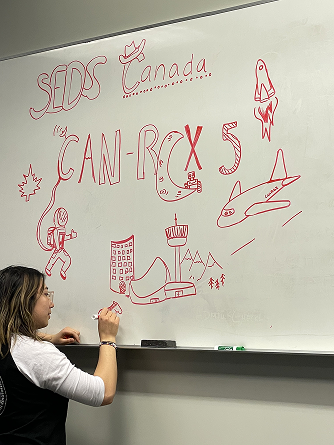 SEDS Canada
CAN-RGX 5